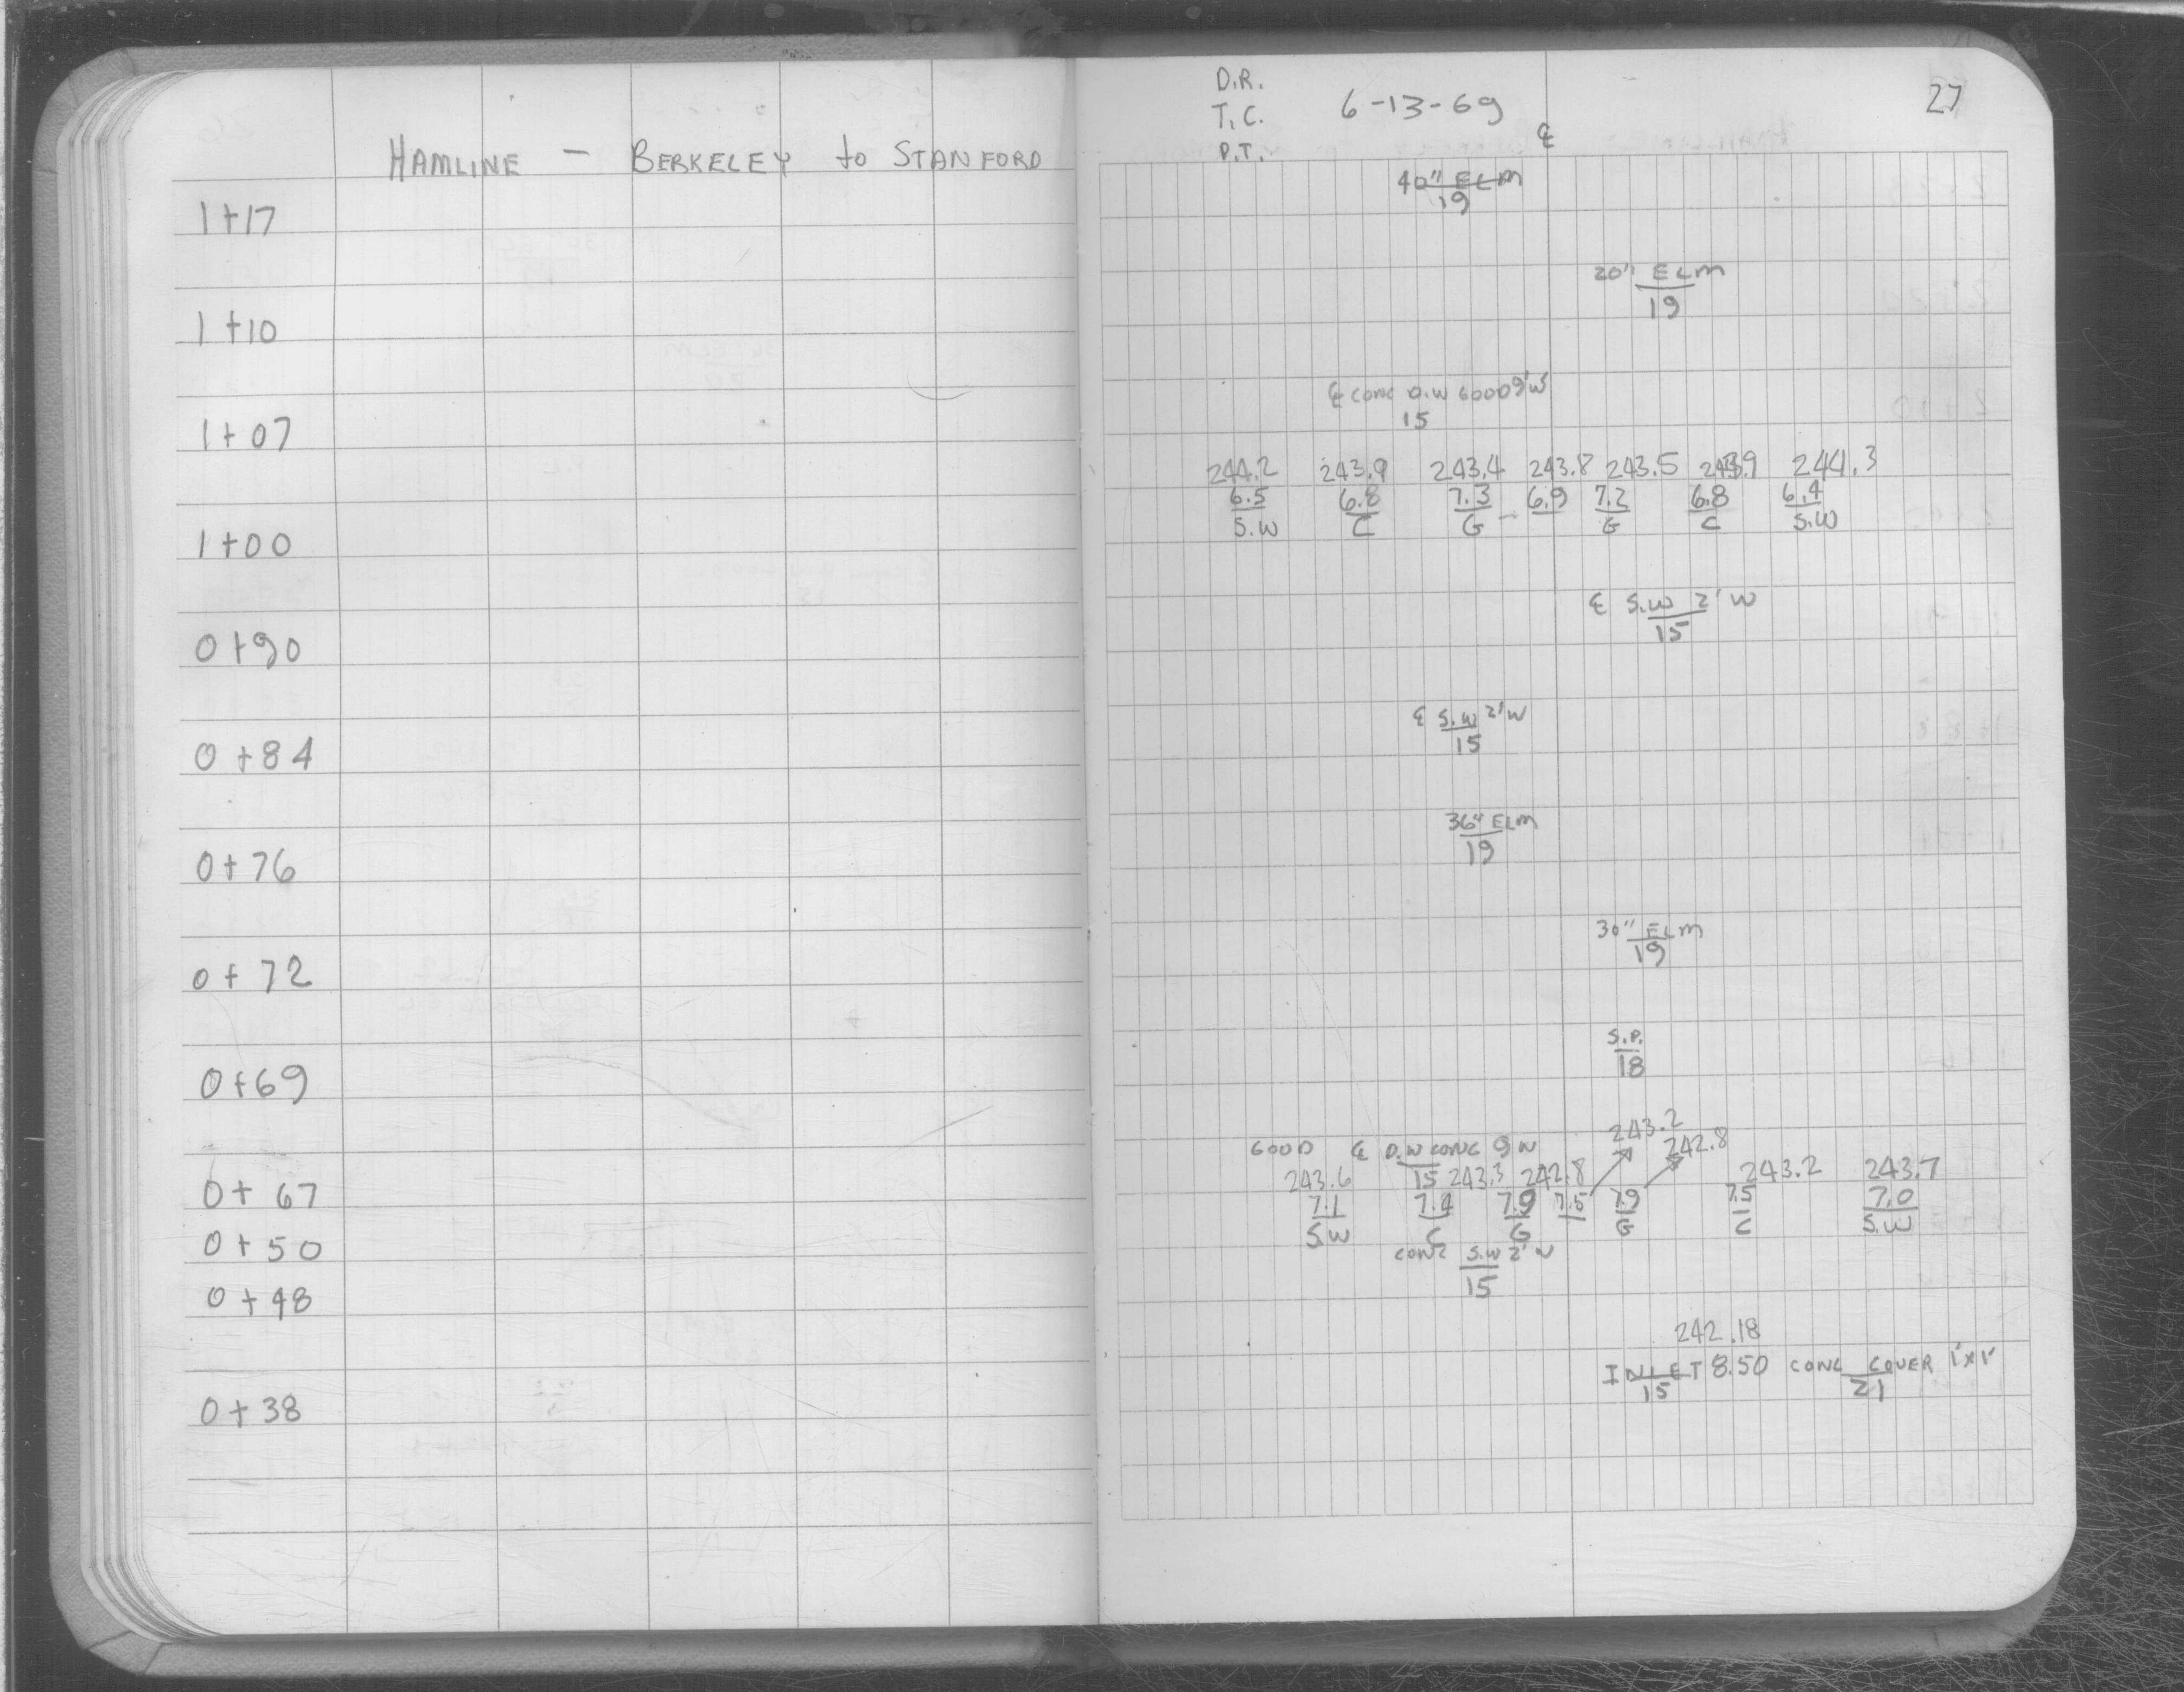 HAMLINE — BERKELEY to STANFORD
1+17
1+10
1+07
1+00
0+90
0+84
0+76
0+72
0+69
0+67
0+50
0+48
0+38
D.R.
T.C. 6-13-69
P.T. ℄
27
40" ELM
19
20" ELM
19
℄ CONC D.W GOOD 9'W
15
244.2 243.9 243.4 243.8 243.5 243.9 244.3
6.5 6.8 7.3 6.9 7.2 6.8 6.4
S.W C G G C S.W
℄ S.W 2' W
15
℄ S.W 2'W
15
36" ELM
19
30" ELM
19
S.P.
18
243.2
GOOD ℄ D.W CONC 9 W 242.8
243.6 15 243.3 242.8 243.2 243.7
7.1 7.4 7.9 7.5 7.9 7.5 7.0
S.W C G G C S.W
CONC S.W 2' W
15
242.18
INLET 8.50 CONC COVER 1'x1'
15 21